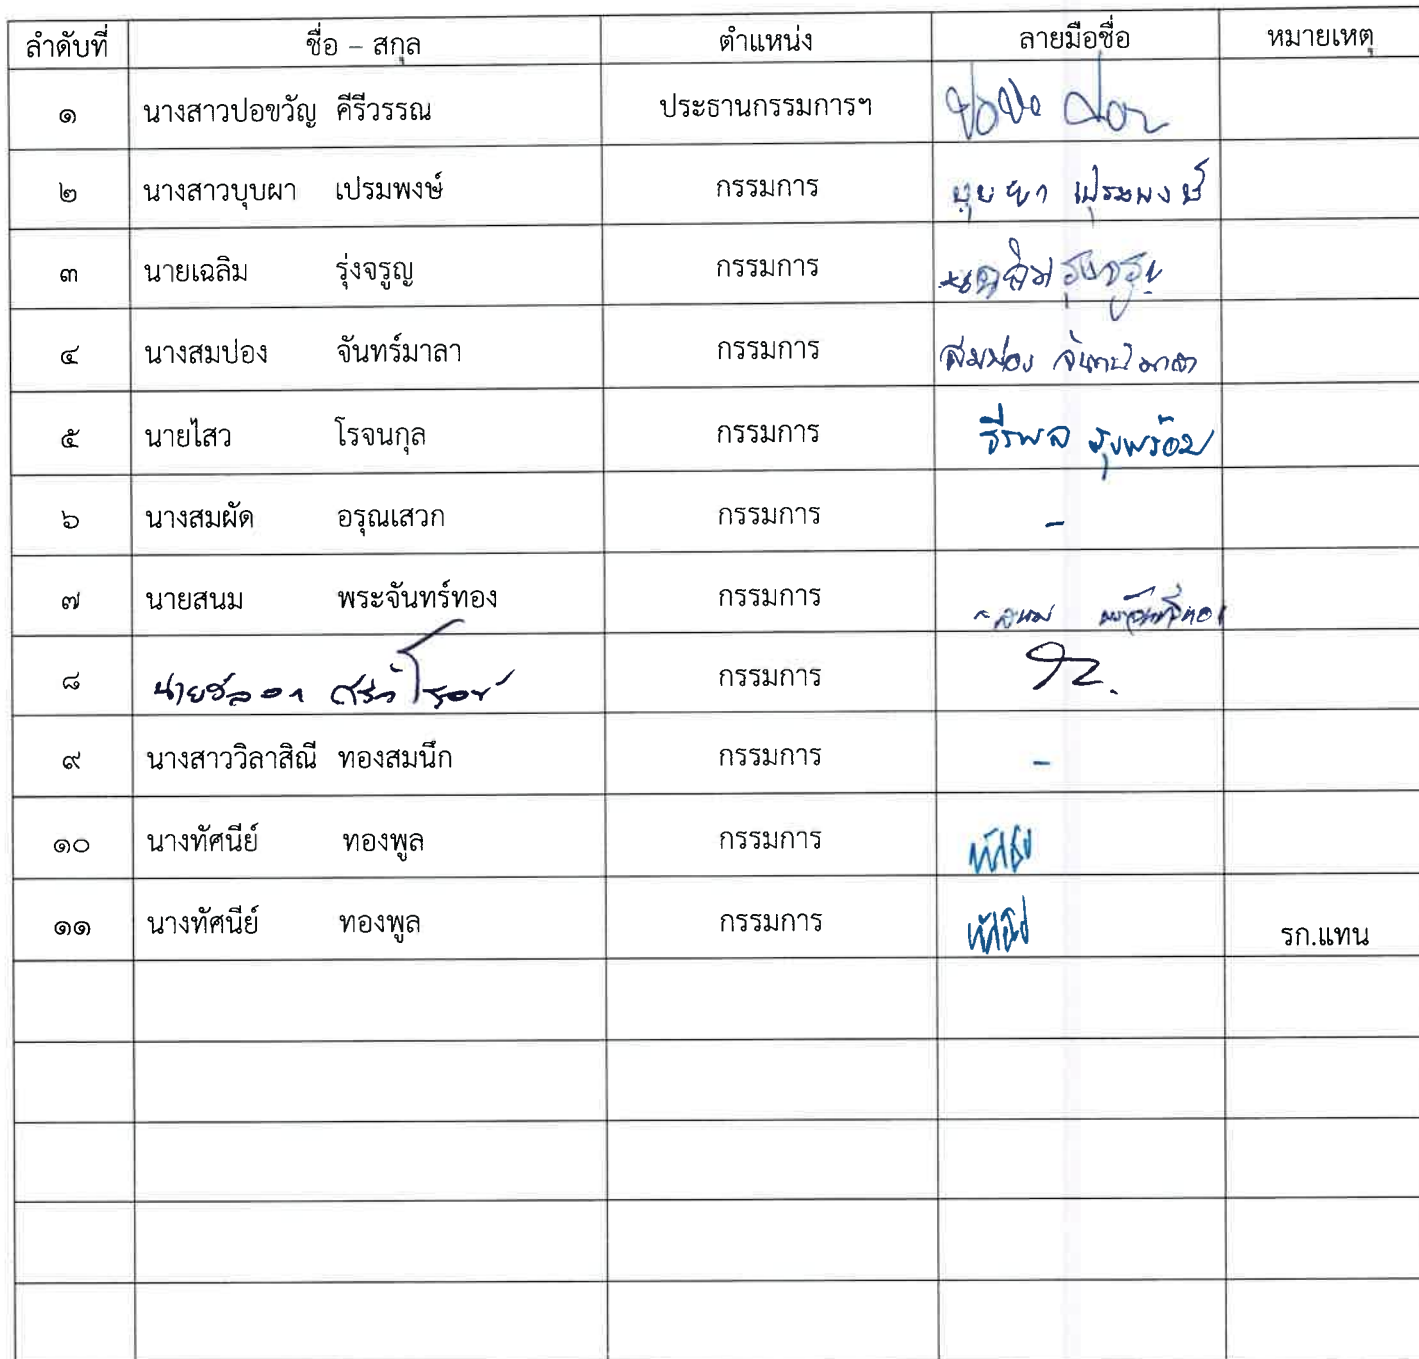 ลำดับที่ ชื่อ – สกุล ตำแหน่ง ลายมือชื่อ หมายเหตุ
๑ นางสาวปอขวัญ คีรีวรรณ ประธานกรรมการฯ
๒ นางสาวบุบผา เปรมพงษ์ กรรมการ บุบผา เปรมพงษ์
๓ นายเฉลิม รุ่งจรูญ กรรมการ เฉลิม รุ่งจรูญ
๔ นางสมปอง จันทร์มาลา กรรมการ สมปอง จันทร์มาลา
๕ นายไสว โรจนกุล กรรมการ ธีรพล
๖ นางสมผัด อรุณเสวก กรรมการ -
๗ นายสนม พระจันทร์ทอง กรรมการ สนม พระจันทร์ทอง
๘ กรรมการ
๙ นางสาววิลาสิณี ทองสมนึก กรรมการ -
๑๐ นางทัศนีย์ ทองพูล กรรมการ
๑๑ นางทัศนีย์ ทองพูล กรรมการ รก.แทน